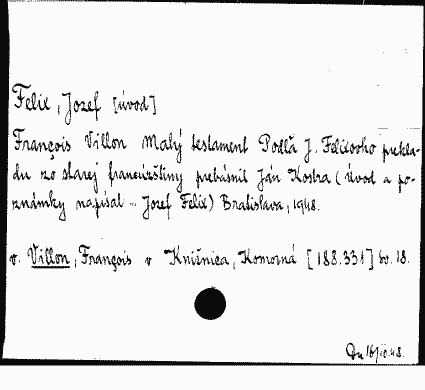 Felix, Jozef [úvod]
François Villon Malý testament Podľa J. Felixovho prekla-
du zo starej francúzštiny prebásnil Ján Kostra (Úvod a po-
známky napísal – Jozef Felix) Bratislava, 1948.
v. Villon, François v Knižnica, Komorná [188.331] sv. 18.
16/10.48.